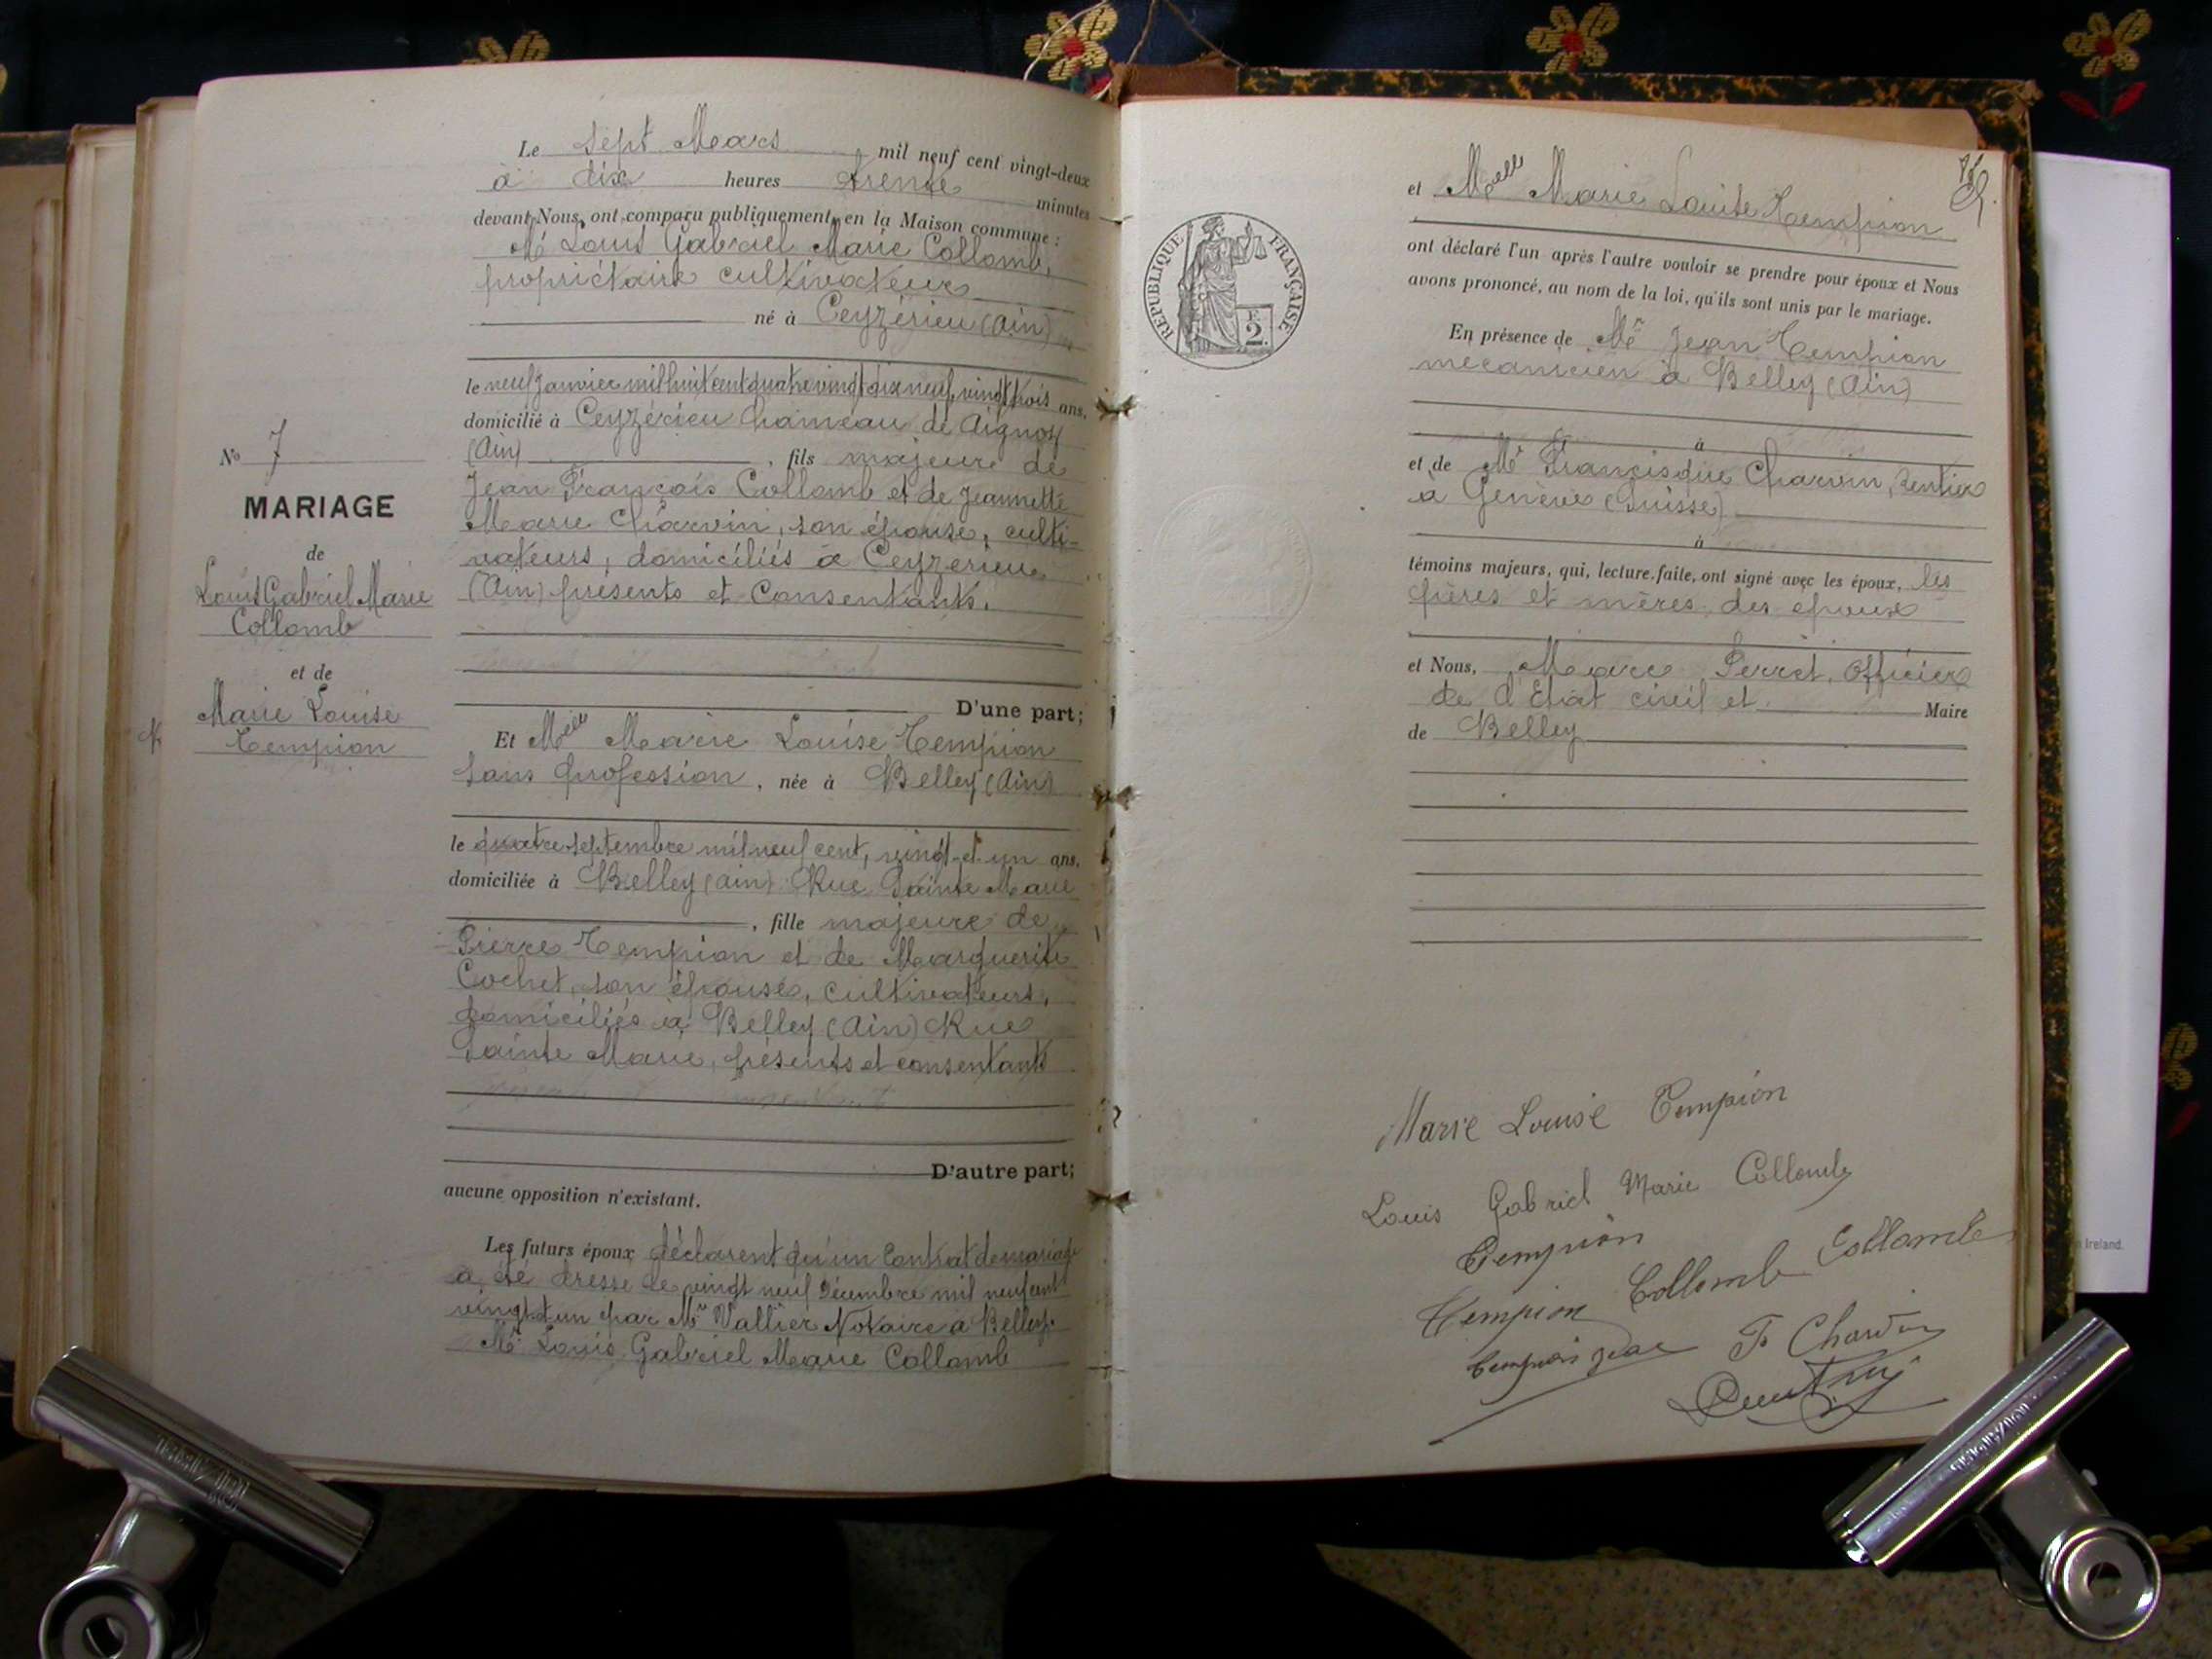 Le sept Mars mil neuf cent vingt-deux
à dix heures trente minutes
devant Nous, ont comparu publiquement en la Maison commune :
Mr Louis Gabriel Marie Collomb,
propriétaire cultivateur
né à Ceyzérieu (Ain)
le neuf Janvier mil huit cent quatre vingt dix neuf, vingt trois ans,
domicilié à Ceyzérieu hameau de Aignoz
(Ain) , fils majeur de
Jean François Collomb et de Jeannette
Marie Charvin, son épouse, culti-
vateurs, domiciliés à Ceyzerieu
(Ain) présents et Consentants.
D'une part;
Et Melle Marie Louise Tempion
sans profession, née à Belley (Ain)
le quatre septembre mil neuf cent, vingt et un ans,
domiciliée à Belley (Ain) Rue Sainte Marie
, fille majeure de
Pierre Tempion et de Marguerite
Cochet, son épouse, cultivateurs,
domiciliés à Belley (Ain) Rue
Sainte Marie, présents et consentants
D'autre part;
aucune opposition n'existant.
Les futurs époux déclarent qu'un Contrat de mariage
a été dressé le vingt neuf Décembre mil neuf cent
vingt et un par Me Vallier Notaire à Belley.
Mr Louis Gabriel Marie Collomb
No 7
MARIAGE
de
Louis Gabriel Marie
Collomb
et de
Marie Louise
Tempion
et Melle Marie Louise Tempion
ont déclaré l'un après l'autre vouloir se prendre pour époux et Nous
avons prononcé, au nom de la loi, qu'ils sont unis par le mariage.
En présence de Mr Jean Tempion
mecanicien à Belley (Ain)
à
et de Mr Francisque Charvin, Rentier
à Genève (Suisse)
à
témoins majeurs, qui, lecture faite, ont signé avec les époux, les
pères et mères des époux
et Nous, Marc Perret, Officier
de l'Etat civil et Maire
de Belley
RÉPUBLIQUE FRANÇAISE
F.
2.
Marie Louise Tempion
Louis Gabriel Marie Collomb
Tempion
Tempion Collomb Collomb
Tempion Jean F. Charvin
n Ireland.